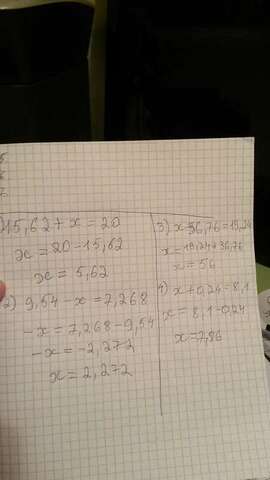 1) 15,62 + x = 20
x = 20 - 15,62
x = 5,62
2) 9,54 - x = 7,268
-x = 7,268 - 9,54
-x = -2,272
x = 2,272
3) x - 36,76 = 19,24
x = 19,24 + 36,76
x = 56
4) x + 0,24 = 8,1
x = 8,1 - 0,24
x = 7,86